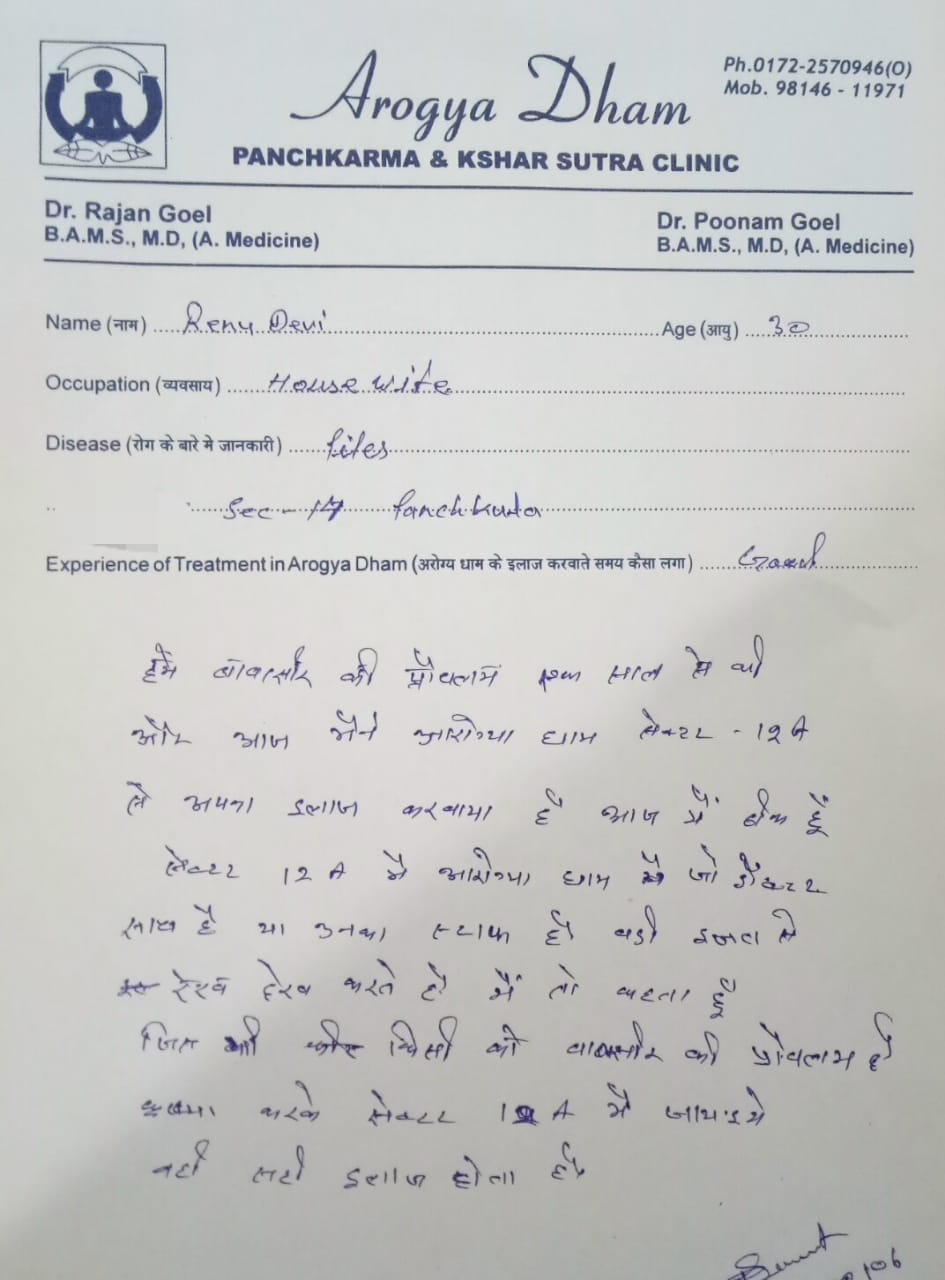 Arogya Dham
Ph.0172-2570946(O)
Mob. 98146 - 11971
PANCHKARMA & KSHAR SUTRA CLINIC
Dr. Rajan Goel
B.A.M.S., M.D, (A. Medicine)
Dr. Poonam Goel
B.A.M.S., M.D, (A. Medicine)
Name (नाम) Renu Devi Age (आयु) 30
Occupation (व्यवसाय) House wife
Disease (रोग के बारे मे जानकारी) Piles
Sec - 14 Panchkula
Experience of Treatment in Arogya Dham (अरोग्य धाम के इलाज करवाते समय कैसा लगा) Good
हमे बावासीर की प्रौबलम एक साल से थी
और आज मैने आरोग्या धाम सेक्टर - 12 A
से अपना इलाज करवाया है आज में ठीक हूँ
सेक्टर 12 A मै आरोग्या धाम मे जो डॉक्टर
साब है या उनका स्टाफ है बडी इजत से
देख रेख करते है मैं तो कहता हूँ
जिस भी किसी को बावासीर की प्रौबलम है
करके सेक्टर 12 A में जायइये
वही सही इलाज होता है